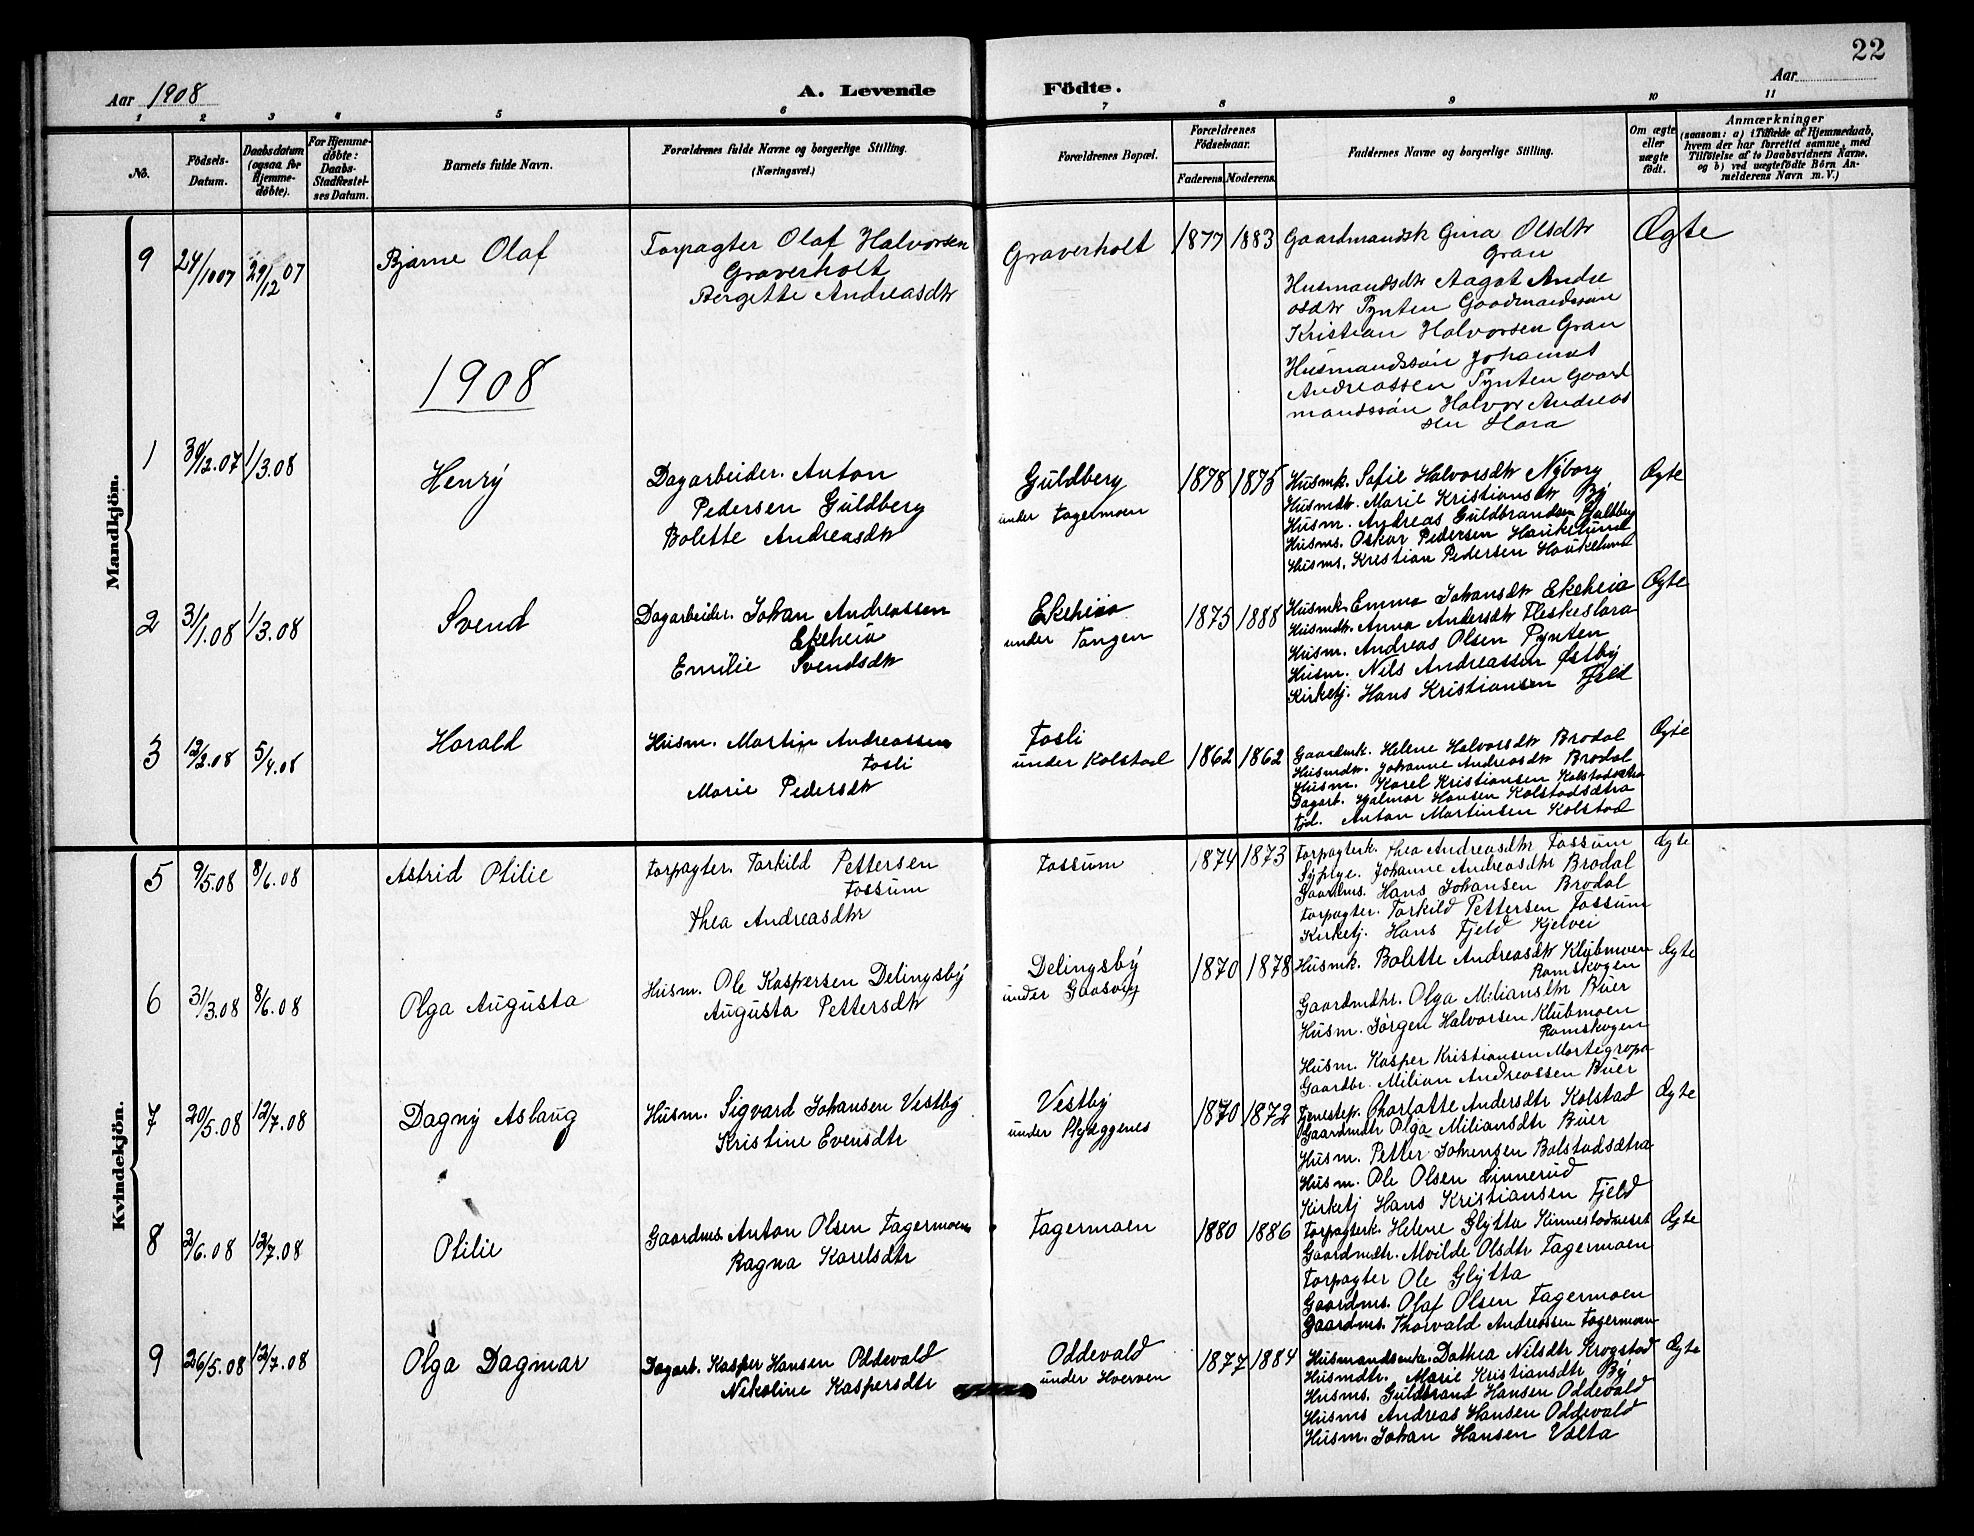 22
Aar 1908 A. Levende Födte. Aar
1 2 3 4 5 6 7 8 9 10 11
No.
Födsels-Datum.
Daabsdatum (ogsaa for Hjemmedöbte).
For Hjemmedöbte: Daabs-Stadfæstelses Datum.
Barnets fulde Navn.
Forældrenes fulde Navne og borgerlige Stilling. (Næringsvei.)
Forældrenes Bopæl.
Forældrenes Födselsaar.
Faderens. Moderens.
Faddernes Navne og borgerlige Stilling.
Om ægte eller uægte födt.
Anmærkninger
(saasom: a) i Tilfælde af Hjemmedaab,
hvem der har forrettet samme, med
Tilföielse af to Daabsvidners Navne,
og b) ved uægtefödte Börn An-
melderens Navn m. V.)
Mandkjön.
9 24/10 07 29/12 07 Bjarne Olaf
Forpagter Olaf Halvorsen
Graverholt
Bergitte Andreasdtr
Graverholt 1877 1883
Gaardmandsk Gina Olsdtr
Gran
Husmandsdtr Aagot Andre
asdtr Pynten Gaardmandssøn
Kristian Halvorsen Gran
Husmandssøn Johannes
Andreassen Pynten Gaard
mandssøn Halvor Andreas
sen Hara
Ægte
1908
1 30/12.07 1/3.08 Henry
Dagarbeider. Anton
Pedersen Guldberg
Bolette Andreasdtr
Guldberg
under Fagermoen
1878 1875
Husmk. Sofie Halvorsdtr Nyborg
Husmdtr. Marie Kristiansdtr By
Husm. Andreas Guldbrandsen Guldberg
Husms. Oskar Pedersen Haukelund
Husms. Kristian Pedersen Haukelund
Ægte
2 31/1.08 1/3.08 Svend
Dagarbeider. Johan Andreassen
Ekeheia
Emilie Svendsdtr
Ekeheia
under Tangen
1875 1888
Husmk. Emma Johansdtr Ekeheia
Husmdtr. Anna Andersdtr Fleskeslora
Husm. Andreas Olsen Pynten
Husm. Nils Andreassen Østby
Kirketj. Hans Kristiansen Fjeld
Ægte
3 12/2.08 5/4.08 Harald
Husm. Martin Andreassen
Fosli
Marie Pedersdtr
Fosli
under Kolstad
1862 1862
Gaardmk. Helene Halvorsdtr Brodal
Husmdtr. Johanne Andreasdtr Brodal
Husm. Karel Kristiansen Kolstadsætra
Dagarb. Hjalmar Hansen Kolstadsætra
Tjd. Anton Martinsen Kolstad
Ægte
Kvindekjön.
5 9/5.08 8/6.08 Astrid Otilie
Forpagter. Torkild Pettersen
Fossum
Thea Andreasdtr
Fossum 1874 1873
Forpagterk. Thea Andreasdtr Fossum
Sypige. Johanne Andreasdtr Brodal
Gaardms. Hans Johansen Brodal
Forpagter. Torkild Pettersen Fossum
Kirketj. Hans Fjeld Kjelvei
Ægte
6 31/3.08 8/6.08 Olga Augusta
Husm. Ole Kaspersen Delingsby
Augusta Pettersdtr
Delingsby
under Gaasvig
1870 1878
Husmk. Bolette Andreasdtr Klubmoen
Romskogen
Gaardmdtr. Olga Miliansdtr Buer
Husm. Jørgen Halvorsen Klubmoen
Romskogen
Husm. Kasper Kristiansen Mortegropa
Gaardbr. Milian Andreassen Buer
Ægte
7 20/5.08 12/7.08 Dagny Aslaug
Husm. Sigvard Johansen Vestby
Kristine Evensdtr
Vestby
under Plyæggenes
1870 1872
Tjenestep. Charlotte Andersdtr Kolstad
Gaardmdtr Olga Miliansdtr Buer
Husm. Petter Johansen Bolstadsætra
Husm. Ole Olsen Linnerud
Kirketj Hans Kristiansen Fjeld
Ægte
8 2/6.08 12/7.08 Otilie
Gaardms. Anton Olsen Fagermoen
Ragna Karelsdtr
Fagermoen 1880 1886
Forpagterk. Helene Glytta Kinnestadneset
Gaardmdtr. Alvilde Olsdtr Fagermoen
Forpagter Ole Glytta
Gaardms. Olaf Olsen Fagermoen
Gaardms. Thorvald Andreassen Fagermoen
Ægte
9 26/5.08 12/7.08 Olga Dagmar
Dagarb. Kasper Hansen Oddevald
Nikoline Kaspersdtr
Oddevald
under Hverven
1877 1884
Husmandsenke. Dathea Nilsdtr Krogstad
Husmdtr. Marie Kristiansdtr By
Husms. Guldbrand Hansen Oddevald
Husms Andreas Hansen Oddevald
Husm. Johan Hansen Valta
Ægte